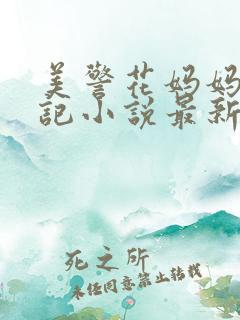 美警花妈妈
记小说最新
死之所
未经同意禁止转载